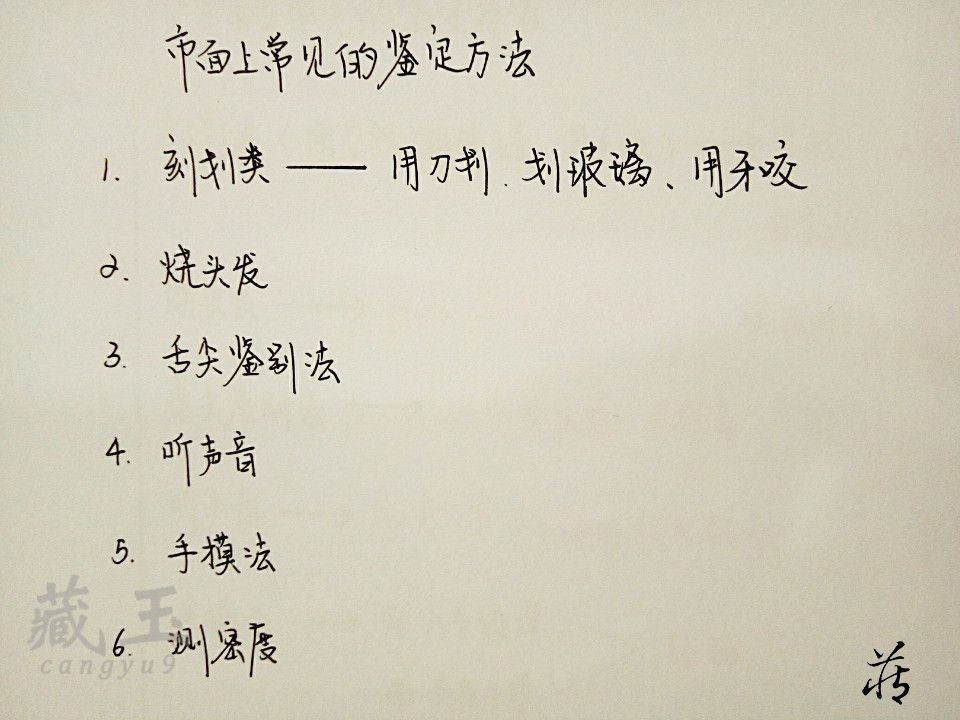 市面上常见的鉴定方法
1. 刻划类 —— 用刀划、划玻璃、用牙咬
2. 烧头发
3. 舌尖鉴别法
4. 听声音
5. 手摸法
6. 测密度
藏玉
cangyu9